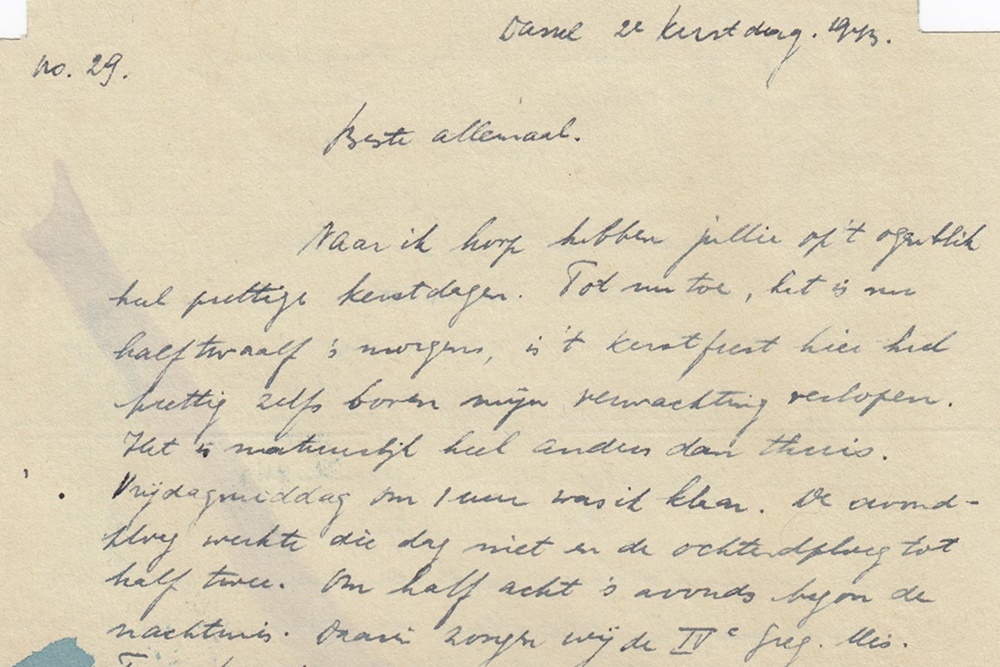 2e Kerstdag. 1943.
no. 29.
Beste allemaal.
Naar ik hoop hebben jullie op 't ogenblik
heel prettige kerstdagen. Tot nu toe, het is nu
half twaalf 's morgens, is 't kerstfeest hier heel
prettig zelfs boven mijn verwachting verlopen.
Het is natuurlijk heel anders dan thuis.
Vrijdagmiddag om 1 uur was ik klaar. De avond-
ploeg werkte die dag niet en de ochtendploeg tot
half twee. Om half acht 's avonds begon de
nachtmis. Daarin zongen wij de IVe Greg. Mis.